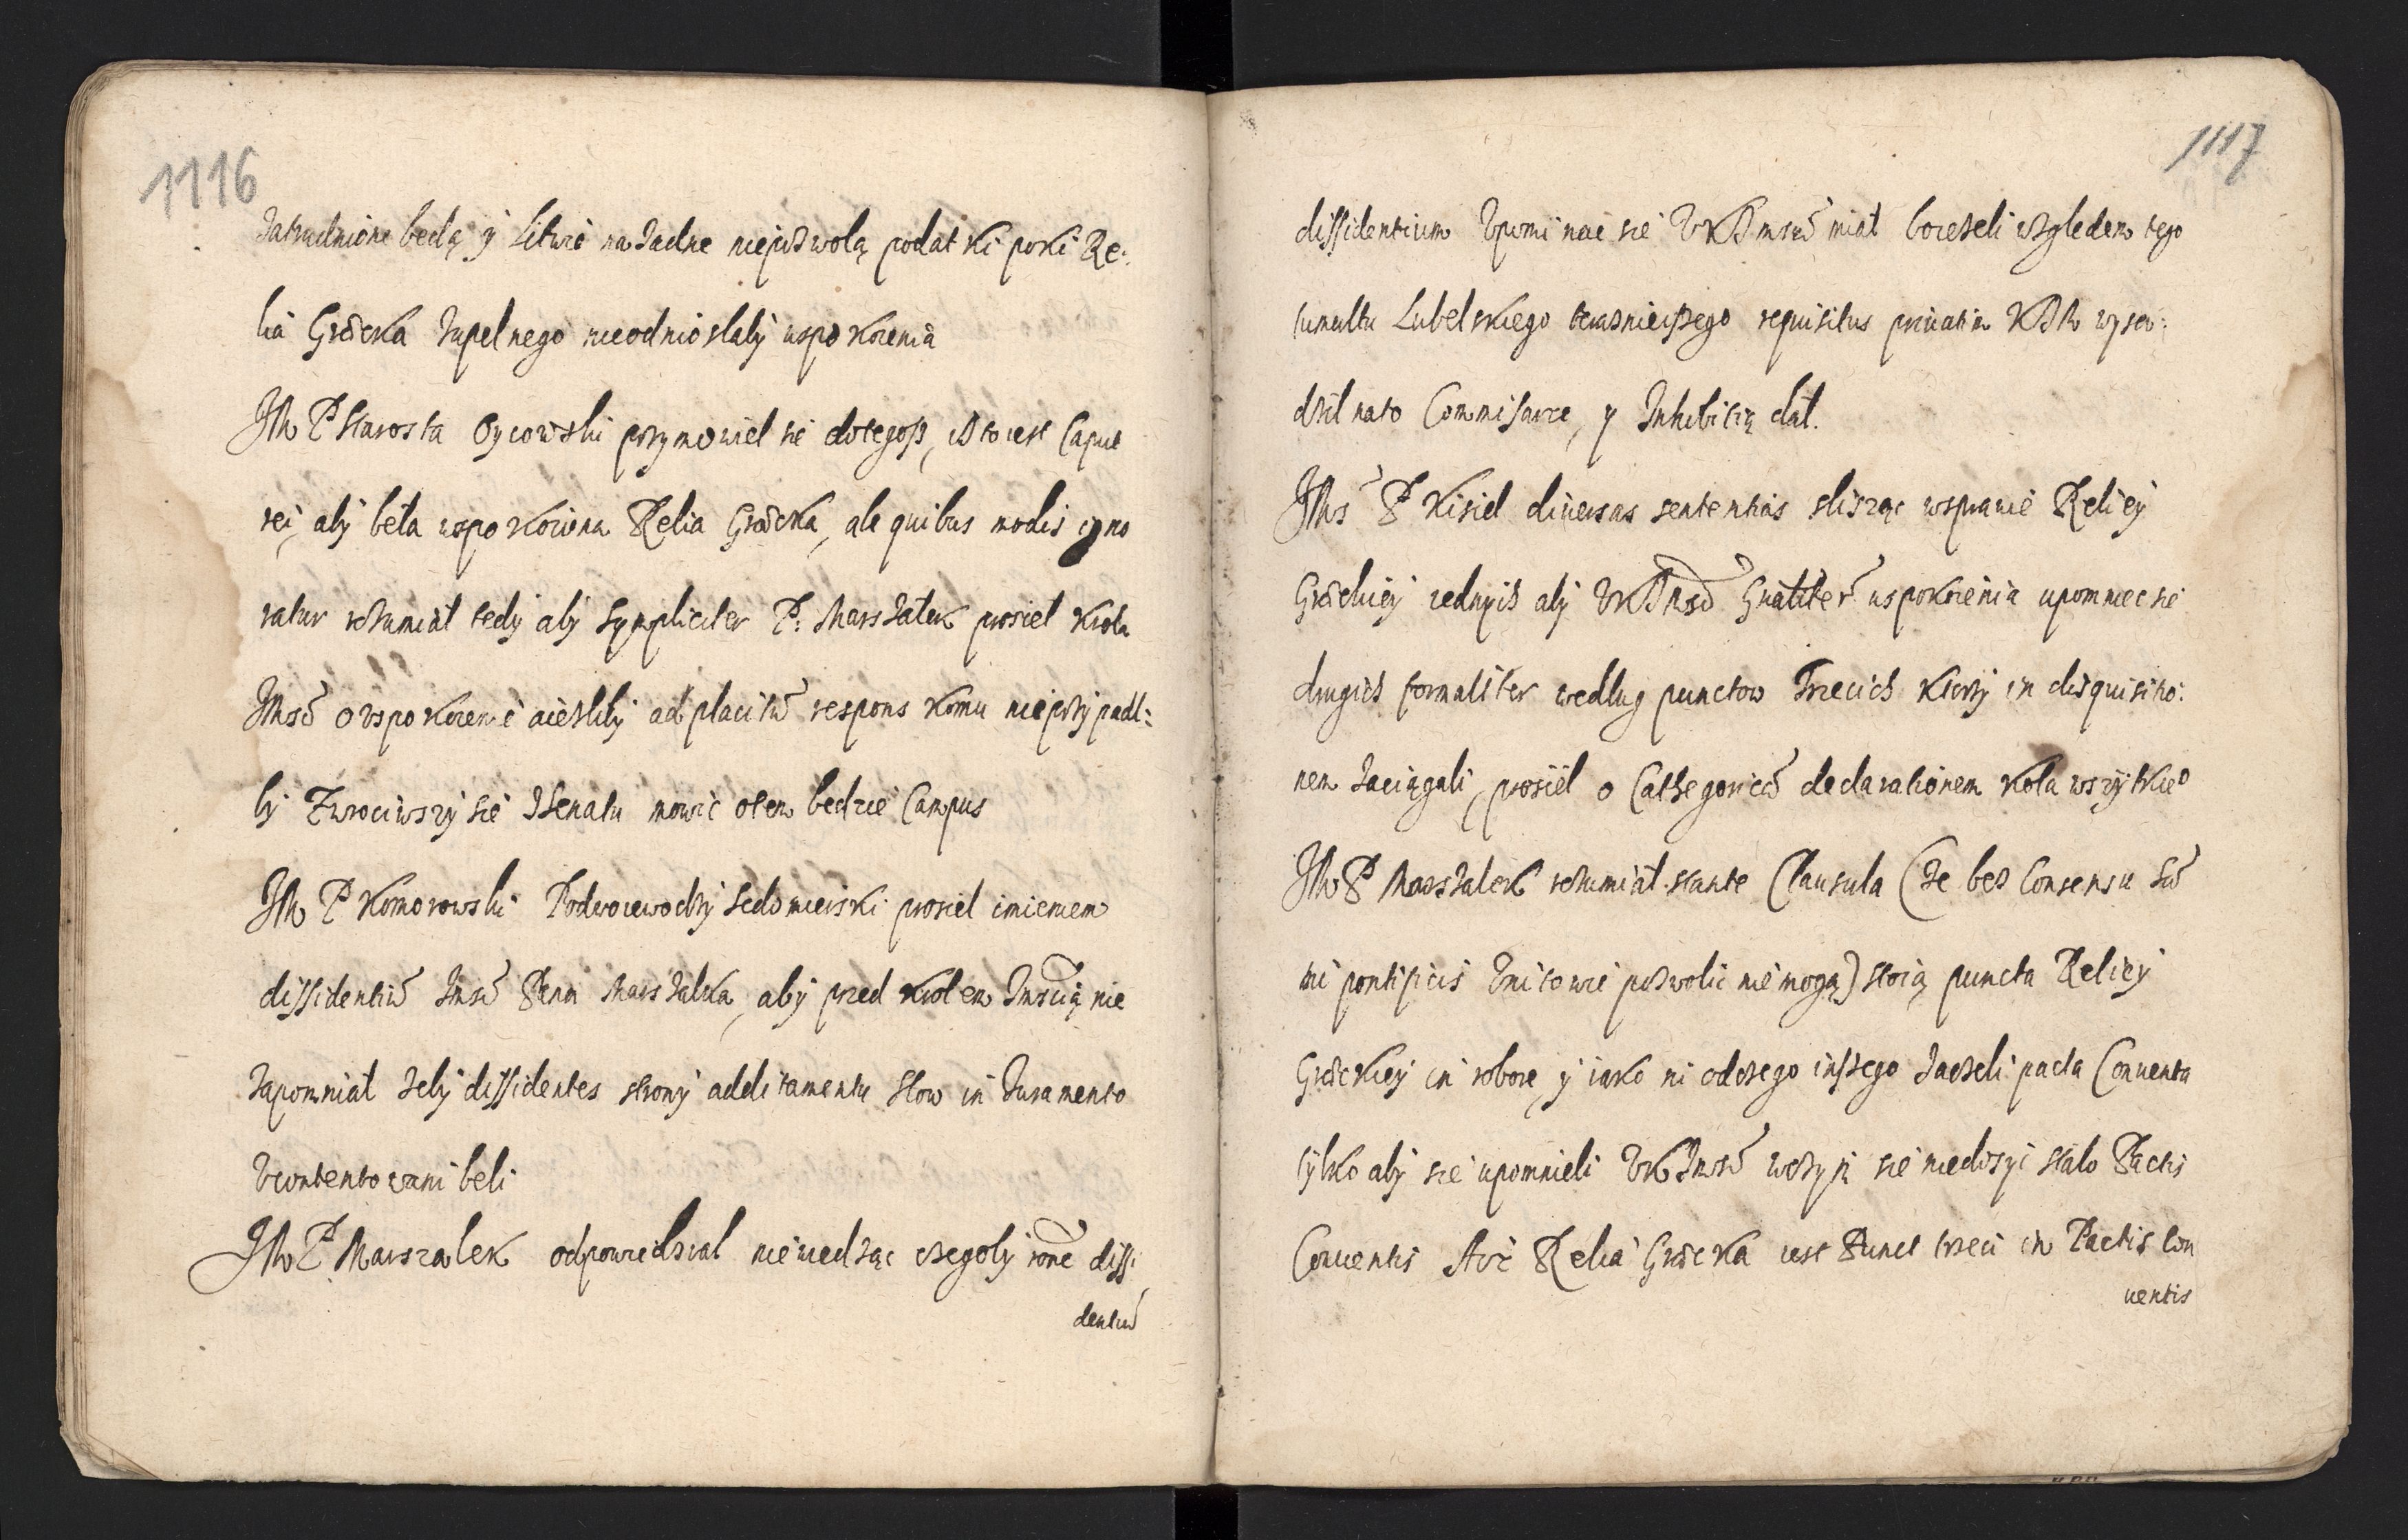 1116
Zatrudnione będą y Litwie na żadne niepozwolą podatki poki Re:
lia Grӕcka zupelnego nieodniosłaby uspokoienia
JM P Starosta Oycowski przymowieł sie dotegosz, iż to iest Caput
rei, aby beła uspokoiona Relia Grӕcka, ale quibus modis igno
ratur rozumiał tedy aby Sympliciter P: Marszałek prosieł Krola
Jmsō o uspokoienie aieżliby ad placitū respons komu nieprzypadl:
by Zwrociwszy sie zSenatu mowić otem będzie Campus
JM P Komorowski Podwoiewodzy Sędomierski prosieł imieniem
dissidentiū Jmsō Pana Marszałka, aby przed Krolem Jmscią nie
zapomniał żeby dissidentes strony additamentu słow in Juramento
Ucontentowani beli
JM P Marszalek odpowiedział niewiedząc czegoby rōne dissi
dentiū
1117
dissidentium Upominać sie UKJmsci miał boieżeli względem tego
tumultu Lubelskiego terasnieiszego requisitus priuatim KJM wysa:
dził nato Commisarze, y Inhibitią dał.
JMs P Kisiel diuersas sententias slisząc wsprawie Reliey
Grӕckiey iednych aby UKJMsō Gnaliter uspokoienia upomniec sie
drugich formaliter według punctow Trzecich ktorzy in disquisitio:
nem zaciągali, prosieł o Cathegoricā declarationem Koła wszytkieo
JM P Marszalek rozumiał stante Clausula (że bez Consensu Su
mi pontificis Unitowie pozwolić niemogą) stoią puncta Reliey
Grӕckiey in robore, y iako ni odczego inszego zaczeli pacta Conuenta
tylko aby sie upomnieli UKJmsō wczym sie niedosyć stało Pactis
Conuentis Aże Relia Grӕcka iest Punct trzeci in Pactis Con
uentis